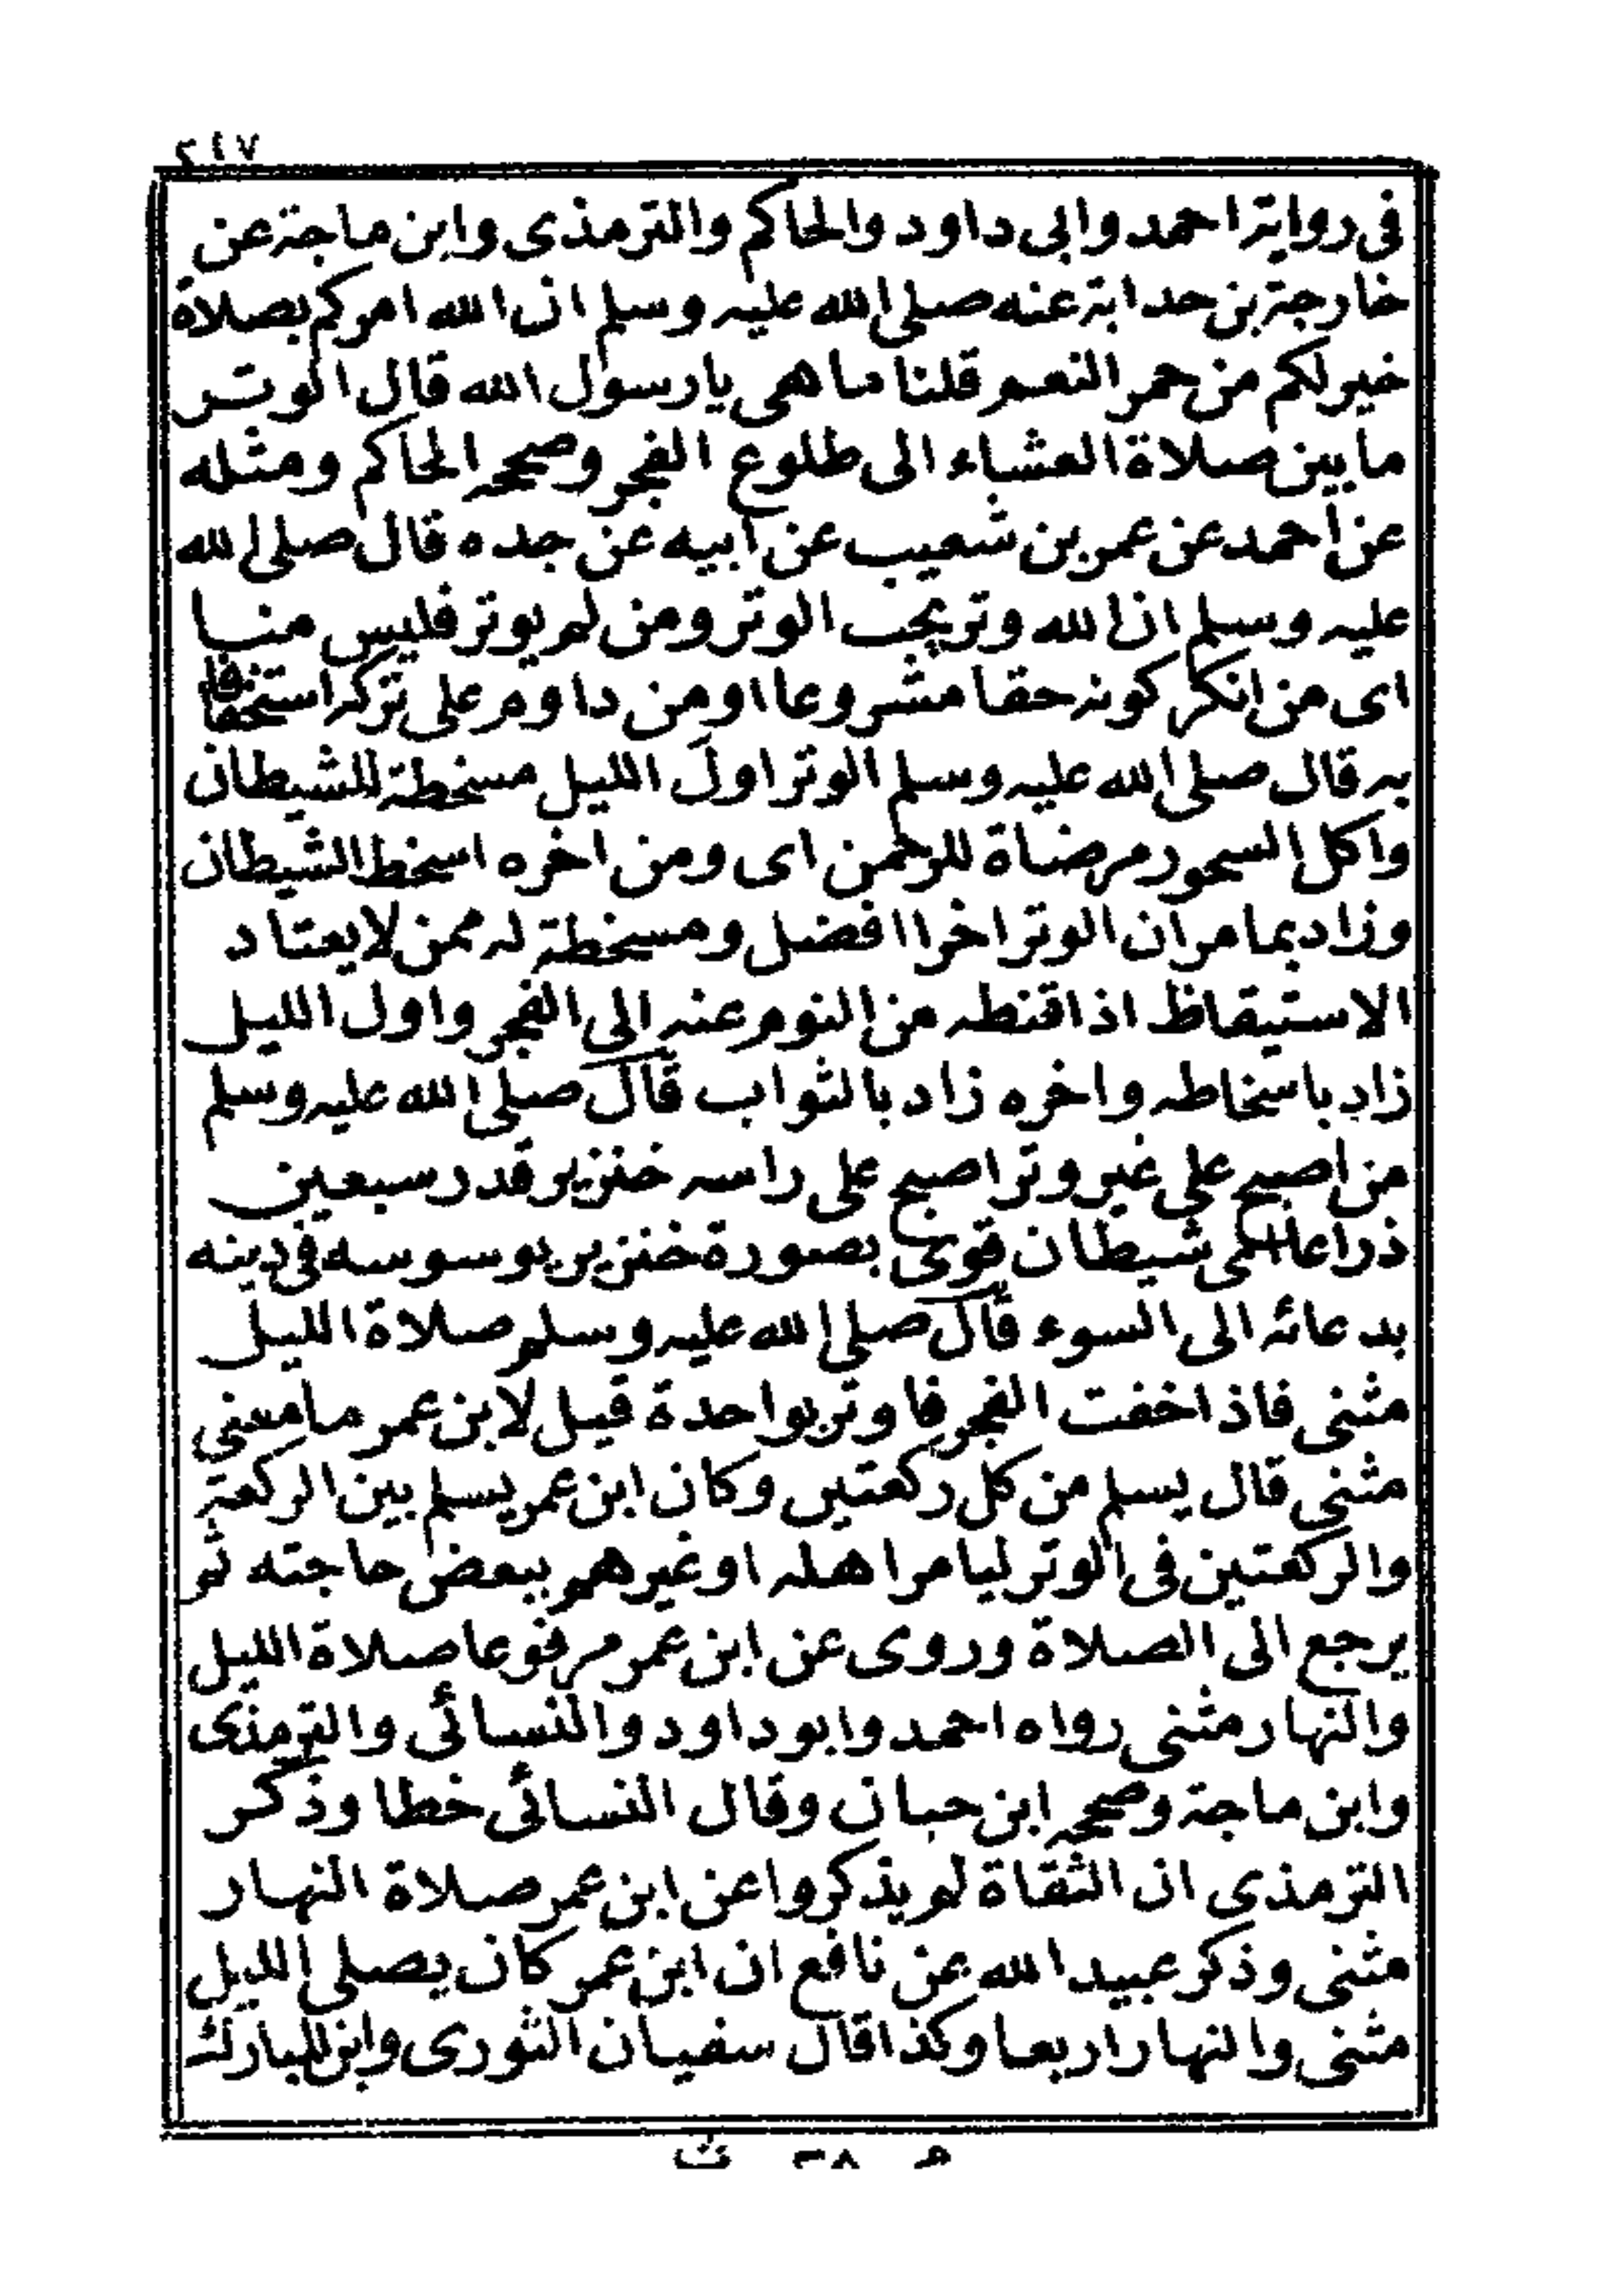 ٢٤٧
فى رواية احمد وابى داود والحاكم والترمذى وابن ماجة عن
خارجة بن حدابة عنه صلى الله عليه وسلم ان الله امركم بصلاة
خير لكم من حمر النعم قلنا ما هى يا رسول الله قال الوتر
ما بين صلاة العشاء الى طلوع الفجر وصححه الحاكم ومثله
عن احمد عن عمر بن شعيب عن ابيه عن جده قال صلى الله
عليه وسلم ان الله وتر يحب الوتر ومن لم يوتر فليس منا
اى من انكر كونه حقا مشروعا او من داوم على تركه استخفافا
به قال صلى الله عليه وسلم الوتر اول الليل مسخطة للشيطان
واكل السحور مرضاة للرحمن اى ومن اخره اسخط الشيطان
وزاد بما مر ان الوتر اخرا افضل ومسخطة له ممن لا يعتاد
الاستيقاظ اذا قنطه من النوم عنه الى الفجر واول الليل
زاد باسخاطه واخره زاد بالثواب قال صلى الله عليه وسلم
من اصبح على غير وتر اصبح على راسه خنزير قدر سبعين
ذراعا شيطان قوى بصورة خنزير يوسوسه فى دينه
بدعائه الى السوء قال صلى الله عليه وسلم صلاة الليل
مثنى فاذا خفت الفجر فاوتر بواحدة قيل لابن عمر ما معنى
مثنى قال يسلم من كل ركعتين وكان ابن عمر يسلم بين الركعة
والركعتين فى الوتر ليامر اهله او غيرهم ببعض حاجته ثم
يرجع الى الصلاة وروى عن ابن عمر مرفوعا صلاة الليل
والنهار مثنى رواه احمد وابو داود والنسائى والترمذى
وابن ماجة وصححه ابن حبان وقال النسائى خطا وذكر
الترمذى ان الثقاة لم يذكروا عن ابن عمر صلاة النهار
مثنى وذكر عبيد الله عن نافع ان ابن عمر كان يصلى الليل
مثنى والنهار اربعا وكذا قال سفيان الثورى وابن المبارك